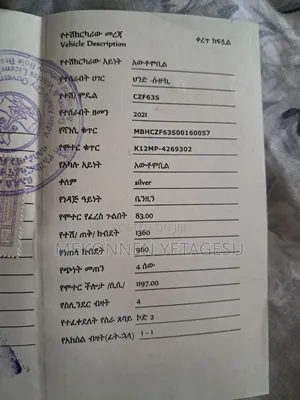 የተሽከርካሪው መረጃ
Vehicle Description
ቀረጥ ከፍሏል
የተሽከርካሪው አይነት አውቶሞቢል
የተሰራበት ሀገር ህንድ -ሱዙኪ
የተሽ/ ሞዴል CZF63S
የተሰራበት ዘመን 2021
የሻንሲ ቁጥር MBHCZF63S00160057
የሞተር ቁጥር K12MP-4269302
የአካሉ አይነት አውቶሞቢል
ቀለም silver
የነዳጅ ዓይነት ቤንዚን
የሞተር የፈረስ ጉልበት 83.00
የተሽ/ ጠቅ/ ክብደት 1360
MEKONNEN YETAGESU
የነጠላ ክብደት 960
የጭነት መጠን 4 ሰው
የሞተር ችሎታ /ሲሲ/ 1197.00
የሲሊንደር ብዛት 4
የተፈቀደለት የስራ ጸባይ ኮድ 2
የአክስል ብዛት(ፊት-ኋላ) 1 - 1